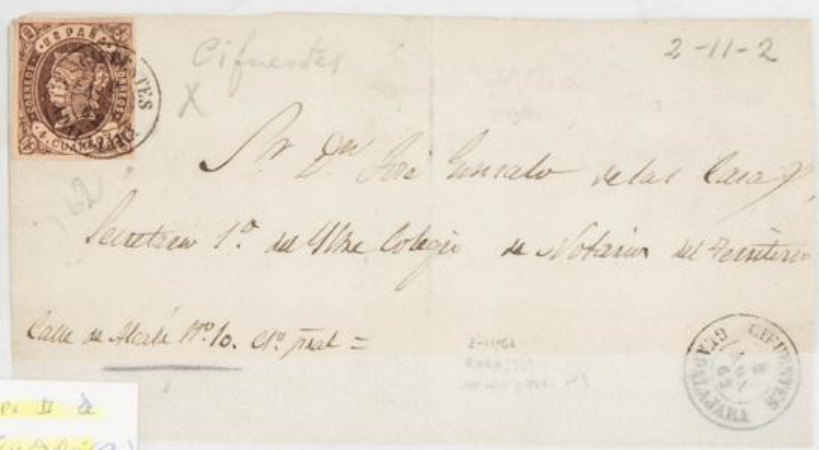 ESPAÑA
CORREOS
CORREOS
4 CUARTOS
CIFUENTES
Cifuentes
X
2-11-2
Sr Dn José Gonzalo de las Casas,
Secretario 1º. del Iltre Colegio de Notarios del Territorio
Calle de Alcalá Nº 10. Cto pral =
CIFUENTES
GUADALAJARA
62